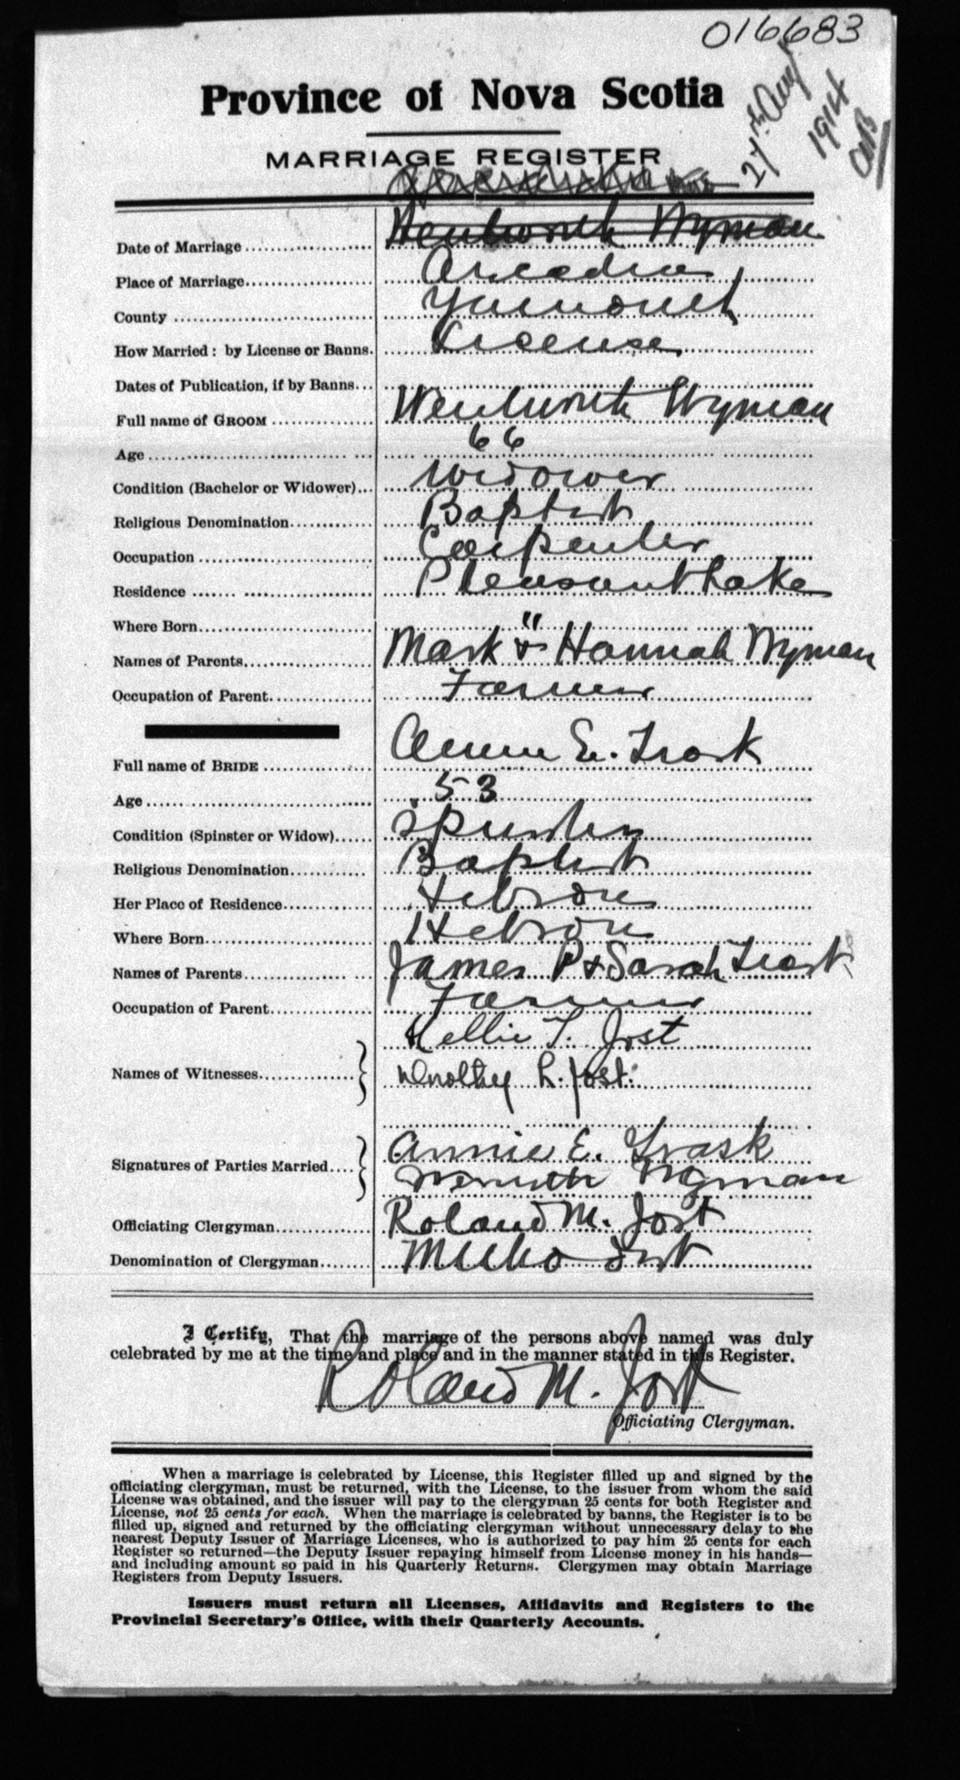 016683
Province of Nova Scotia
27th Aug
1914
MARRIAGE REGISTER
Date of Marriage Wentworth Wyman
Place of Marriage Arcadia
County Yarmouth
How Married: by License or Banns. License
Dates of Publication, if by Banns
Full name of GROOM Wentworth Wyman
Age 66
Condition (Bachelor or Widower) Widower
Religious Denomination Baptist
Occupation Carpenter
Residence Pleasant Lake
Where Born "
Names of Parents Mark & Hannah Wyman
Occupation of Parent Farmer
Full name of BRIDE Annie E. Trask
Age 53
Condition (Spinster or Widow) Spinster
Religious Denomination Baptist
Her Place of Residence Hebron
Where Born Hebron
Names of Parents James P & Sarah Trask
Occupation of Parent Farmer
Nellie T. Jost
Names of Witnesses Dorothy L. Jost
Annie E. Trask
Signatures of Parties Married Wentworth Wyman
Officiating Clergyman Roland M. Jost
Denomination of Clergyman Methodist
I Certify, That the marriage of the persons above named was duly
celebrated by me at the time and place and in the manner stated in this Register.
Roland M. Jost
Officiating Clergyman.
When a marriage is celebrated by License, this Register filled up and signed by the
officiating clergyman, must be returned, with the License, to the issuer from whom the said
License was obtained, and the issuer will pay to the clergyman 25 cents for both Register and
License, not 25 cents for each. When the marriage is celebrated by banns, the Register is to be
filled up, signed and returned by the officiating clergyman without unnecessary delay to the
nearest Deputy Issuer of Marriage Licenses, who is authorized to pay him 25 cents for each
Register so returned—the Deputy Issuer repaying himself from License money in his hands—
and including amount so paid in his Quarterly Returns. Clergymen may obtain Marriage
Registers from Deputy Issuers.
Issuers must return all Licenses, Affidavits and Registers to the
Provincial Secretary's Office, with their Quarterly Accounts.